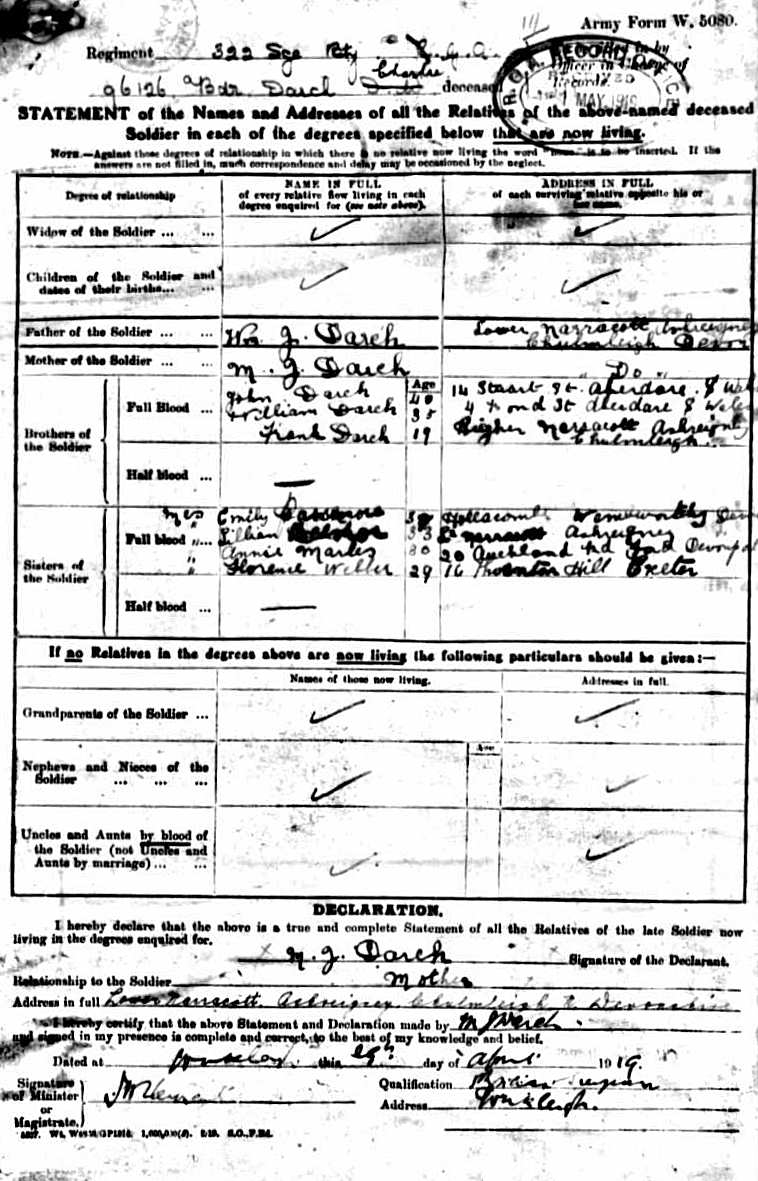 14
Army Form W. 5080.
Regiment 322 Sge Bty R.G.A.
Charlie
96126 Bdr Darch deceased
Officer in Charge of
Records
1 MAY 1919
STATEMENT of the Names and Addresses of all the Relatives of the above-named deceased
Soldier in each of the degrees specified below that are now living.
NOTE.—Against those degrees of relationship in which there is no relative now living the word "none" is to be inserted. If the
answers are not filled in, much correspondence and delay may be occasioned by the neglect.
Degree of relationship
NAME IN FULL
of every relative now living in each
degree enquired for (see note above).
ADDRESS IN FULL
of each surviving relative opposite his or
her name.
Widow of the Soldier ... ...
Children of the Soldier and
dates of their births... ...
Father of the Soldier ... ... Wm J. Darch Lower Narracott Ashreigney
Chulmleigh Devon
Mother of the Soldier ... ... M. J. Darch " Do "
Age
Brothers of
the Soldier
Full Blood ... John Darch 40 14 Stuart St. Aberdare. S Wales
William Darch 35 4 St Aberdare S Wales
Frank Darch 19 Higher Narracott Ashreigney
Chulmleigh
Half blood ... —
Sisters of
the Soldier
Mrs Emily Hollacombe Wembworthy Devon
Full blood ... " Lillian 33 Narracott Ashreigney
" Annie 30 20 Auckland Rd Devonport
" Florence Weller 29 16 Thornton Hill Exeter
Half blood ... —
If no Relatives in the degrees above are now living the following particulars should be given:—
Names of those now living.
Addresses in full.
Grandparents of the Soldier ...
Age
Nephews and Nieces of the
Soldier ... ... ...
Uncles and Aunts by blood of
the Soldier (not Uncles and
Aunts by marriage) ... ...
DECLARATION.
I hereby declare that the above is a true and complete Statement of all the Relatives of the late Soldier now
living in the degrees enquired for.
× M. J. Darch Signature of the Declarant.
Relationship to the Soldier Mother
Address in full Lower Narracott. Ashreigney Chulmleigh N Devonshire
I hereby certify that the above Statement and Declaration made by M J Darch
and signed in my presence is complete and correct, to the best of my knowledge and belief.
Dated at Winkleigh this 29th day of April 1919.
Signature
of Minister
or
Magistrate.
Qualification
Address Winkleigh.